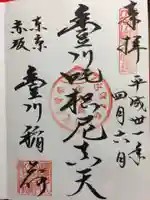 奉拝
平成廿一年
四月六日
豊川吒枳尼真天
東京
赤坂
豊川稲荷